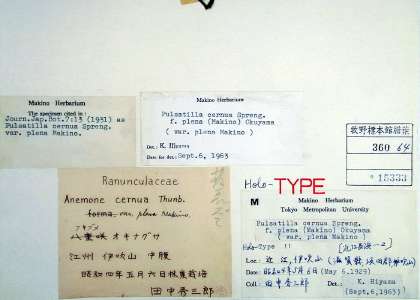 Makino Herbarium
The specimen cited in:
Journ.Jap.Bot.7:13 (1931) as
Pulsatilla cernua Spreng.
var. plena Makino.
Makino Herbarium
Pulsatilla cernua Spreng.
f. plena (Makino) Okuyama
( var. plena Makino )
Det.: K. Hiyama
Date: Sept.6, 1963
牧野標本館
360 64
15333
Ranunculaceae
Anemone cernua Thunb.
forma var. plena Makino.
八重咲オキナグサ
江州 伊吹山 中腹
昭和四年五月六日採
田中香三郎
Holo-TYPE
M Makino Herbarium
Tokyo Metropolitan University
Pulsatilla cernua Spreng.
var. plena Makino
Holo-Type !!
Loc.: 近江, 伊吹山
Date: 昭和4年5月6日 (May 6, 1929)
Coll.: 田中香三郎 Det.: K. Hiyama
(Sept.6, 1963)